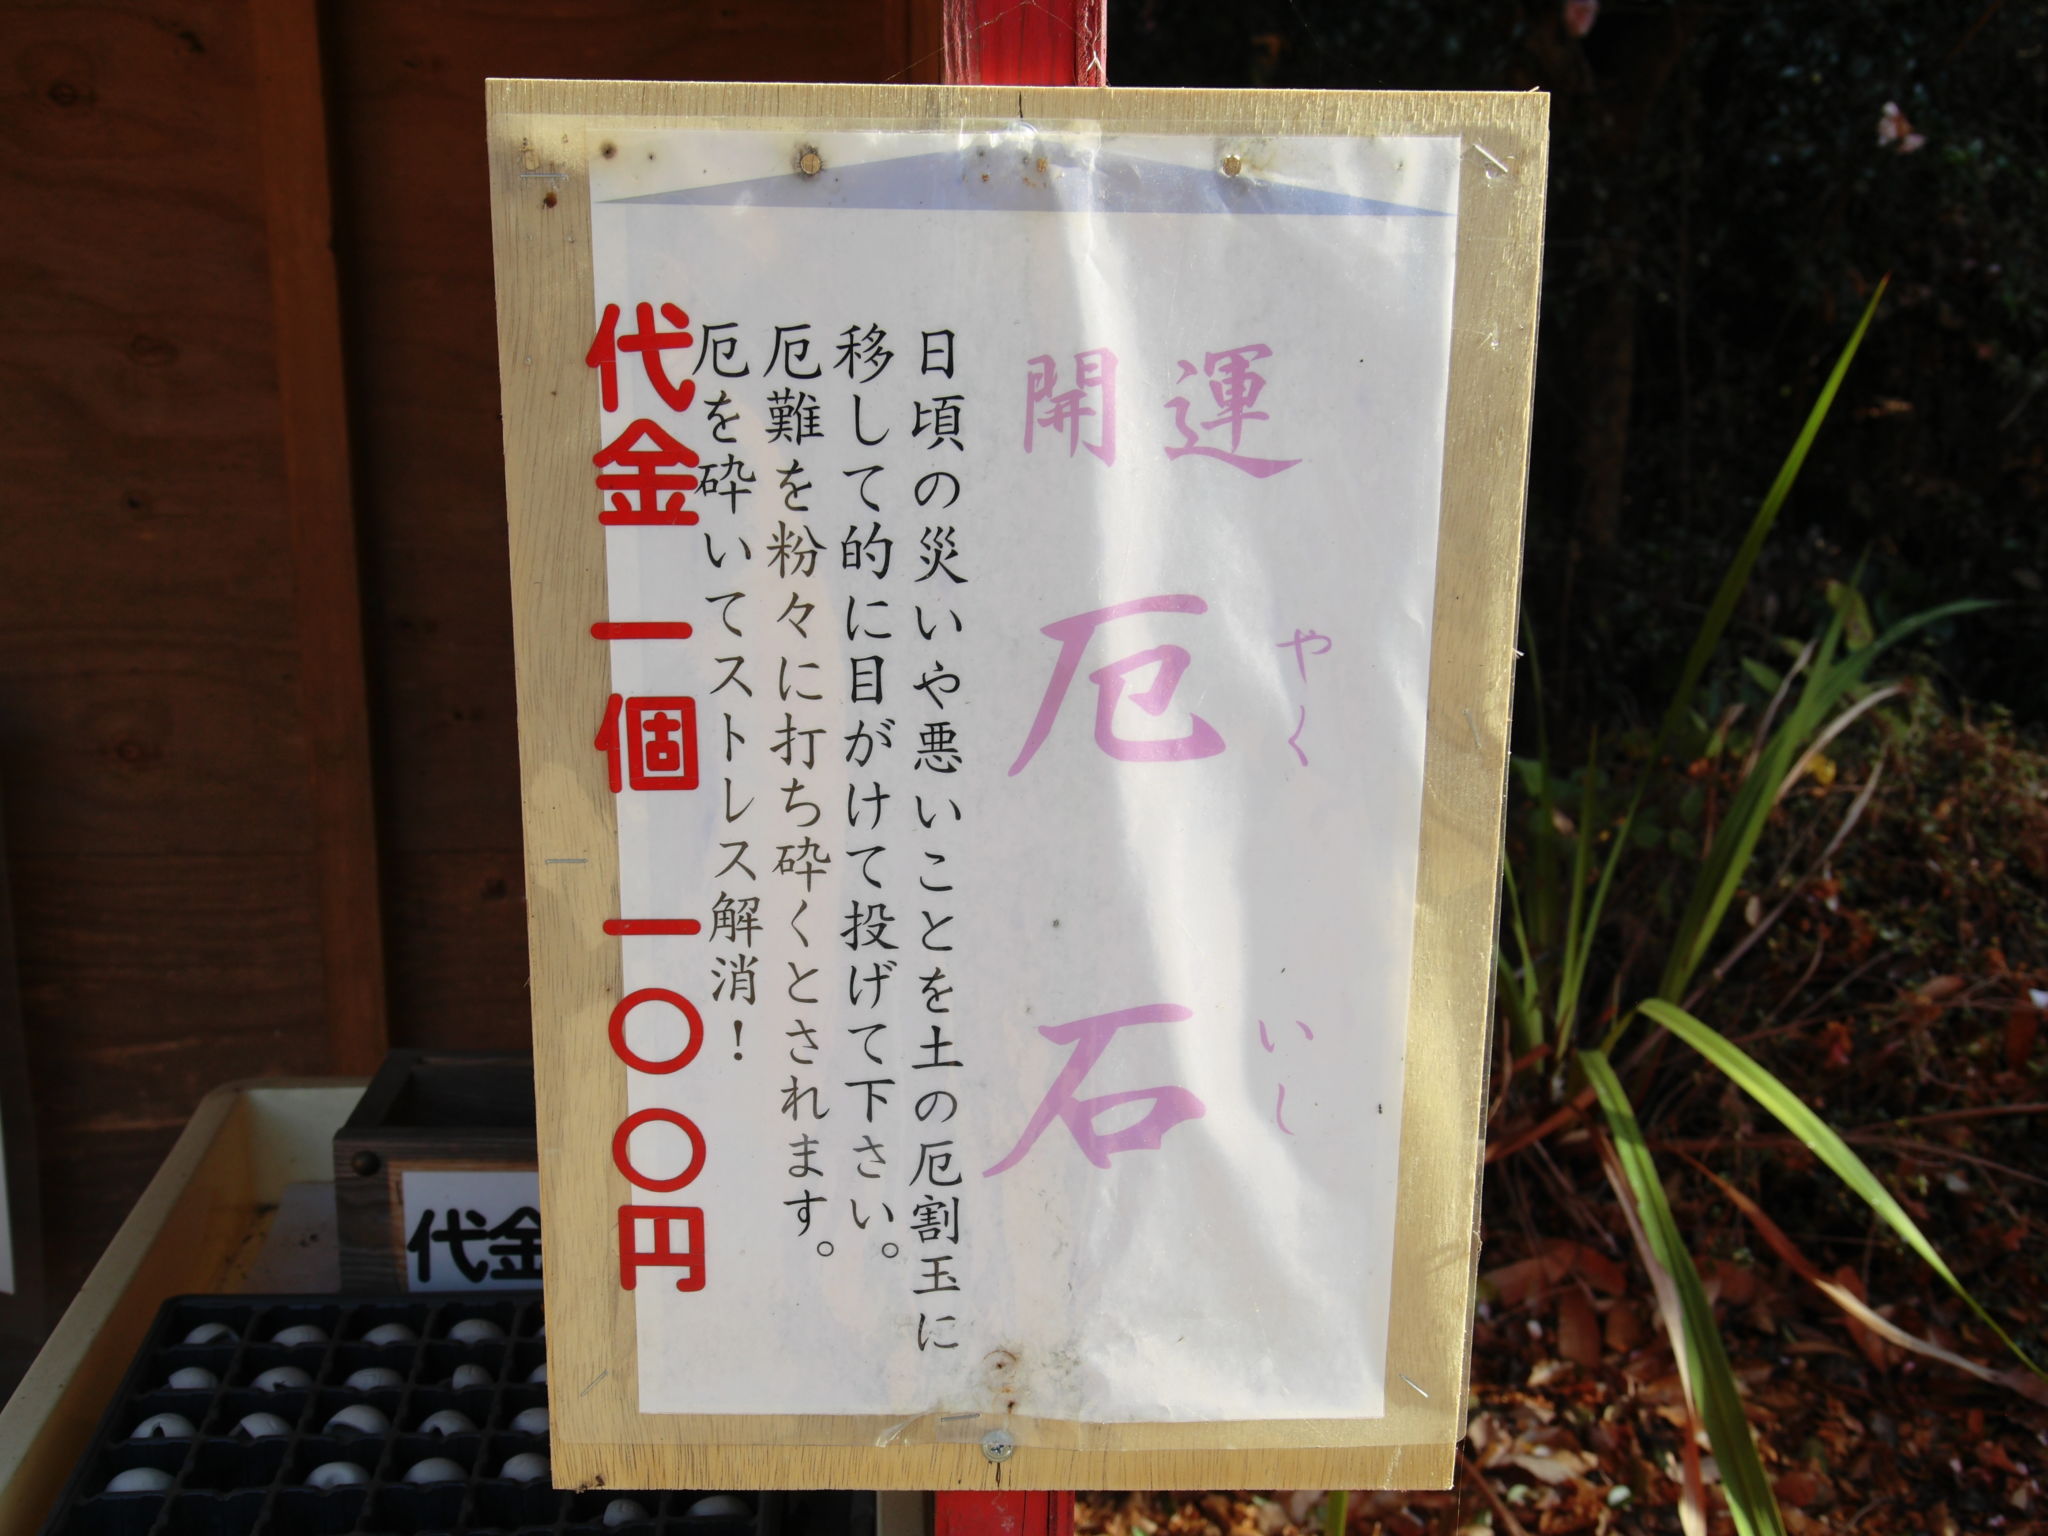 開運
厄石
やくいし
日頃の災いや悪いことを土の厄割玉に
移して的に目がけて投げて下さい。
厄難を粉々に打ち砕くとされます。
厄を砕いてストレス解消！
代金 一個 一〇〇円
代金